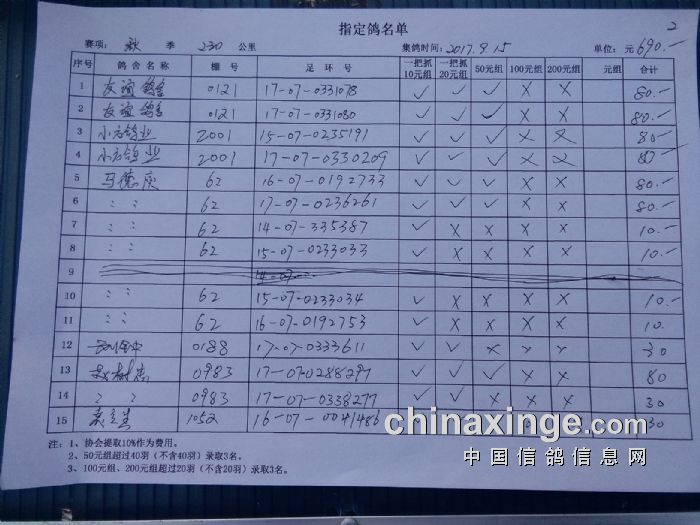 指定鸽名单
2
赛项: 秋 季 230 公里 集鸽时间: 2017.9.15 单位: 元 690.-
序号 鸽舍名称 棚号 足环号 一把抓10元组 一把抓20元组 50元组 100元组 200元组 元组 合计
1 友谊鸽舍 0121 17-07-0331078 ✓ ✓ ✓ X X 80.-
2 友谊鸽舍 0121 17-07-0331080 ✓ ✓ ✓ X X 80.-
3 小 鸽业 2001 15-07-0235191 ✓ ✓ ✓ X X 80.-
4 小 鸽业 2001 17-07-0330209 ✓ ✓ ✓ X X 80.-
5 马德庆 62 16-07-0192733 ✓ ✓ ✓ X X 80.-
6 : : 62 17-07-0236261 ✓ ✓ ✓ X X 80.-
7 : : 62 14-07-335387 ✓ X X X X 10.-
8 : : 62 15-07-0233033 ✓ X X X X 10.-
9
10 : : 62 15-07-0233034 ✓ X X X X 10.-
11 : : 62 16-07-0192753 ✓ X X X X 10.
12 0188 17-07-0333611 ✓ ✓ X X X 30
13 0983 17-07-0288297 ✓ ✓ ✓ X X 80
14 〃 〃 0983 17-07-0338277 ✓ ✓ X X X 30
15 1052 16-07-0041486 30
注: 1、协会提取10%作为费用。
2、50元组超过40羽(不含40羽)录取3名。
3、100元组、200元组超过20羽(不含20羽)录取3名。
chinaxinge.com
中国信鸽信息网